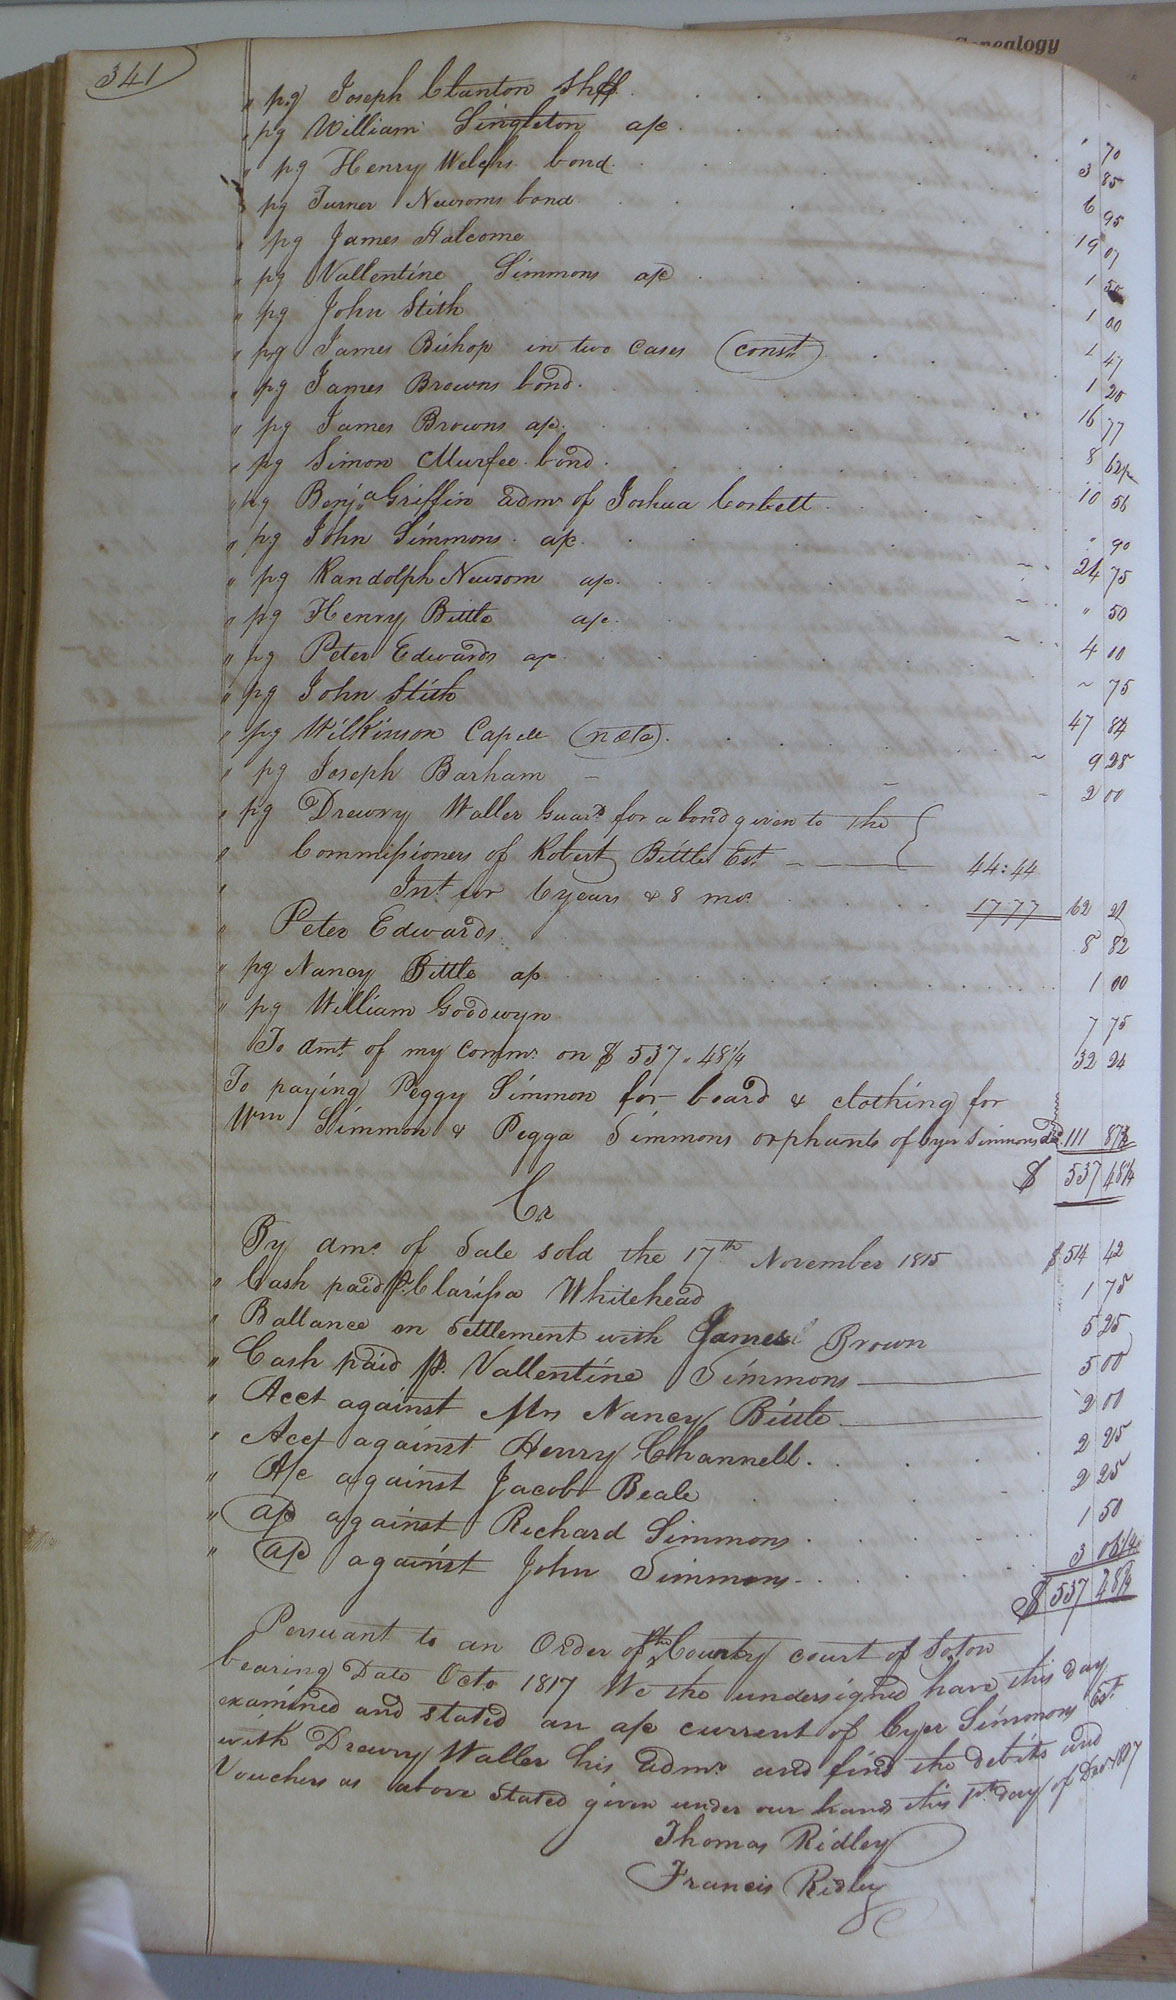 Genealogy
341
" pg Joseph Clanton Shff " 70
" pg William Singleton a/c 3 85
" pg Henry Welchs bond 6 95
" pg Turner Newsoms bond 19 07
" pg James Halcome 1 50
" pg Vallentine Simmons a/c 1 00
" pg John Stith 1 47
" pg James Bishop in two cases (const) 1 20
" pg James Browns bond 16 77
" pg James Browns a/c 8
" pg Simon Murfee bond 10 56
" pg Benja Griffin adm. of Joshua Corbett " 90
" pg John Simmons a/c 24 75
" pg Randolph Newsom a/c " 50
" pg Henry Bittle a/c 4 00
" pg Peter Edwards a/c ~ 75
" pg John Stith 47 84
" pg Wilkinson Capell (note) 9 28
" pg Joseph Barham 2 00
" pg Drewry Waller Guard. for a bond given to the
" Commissioners of Robert Bittles Est 44:44
" Int. for 6 years & 8 mo. 1777 62 21
" Peter Edwards 8 82
" pg Nancy Bittle a/c 1 00
" pg William Goodwyn 7 75
To Amt. of my Comm. on $ 537 " 48 1/4 32 24
To paying Peggy Simmon for board & clothing for
Wm Simmon & Pegga Simmons orphants of Cyer Simmons decd. 111 87 1/2
$ 537 48 1/4
Cr
By Amt. of Sale sold the 17th November 1815 $ 514 42
" Cash paid Pr. Clarissa Whitehead 1 75
" Ballance on Settlement with James Brown 5 25
" Cash paid Pr. Vallentine Simmons 5 00
" Acct against Mrs Nancy Bittle 2 00
" Acct against Henry Channell 2 25
" A/c against Jacob Beale 2 25
" a/c against Richard Simmons 1 50
" a/c against John Simmons 3 06 1/4
$ 537 48 1/4
Persuant to an Order of the County court of Soton
bearing Date Octo 1817 We the undersigned have this day
examined and stated an a/c current of Cyer Simmons Est.
with Drewry Waller his adm. and find the debits and
Vouchers as above Stated given under our hands this day of Dec. 1817
Thomas Ridley
Francis Ridley